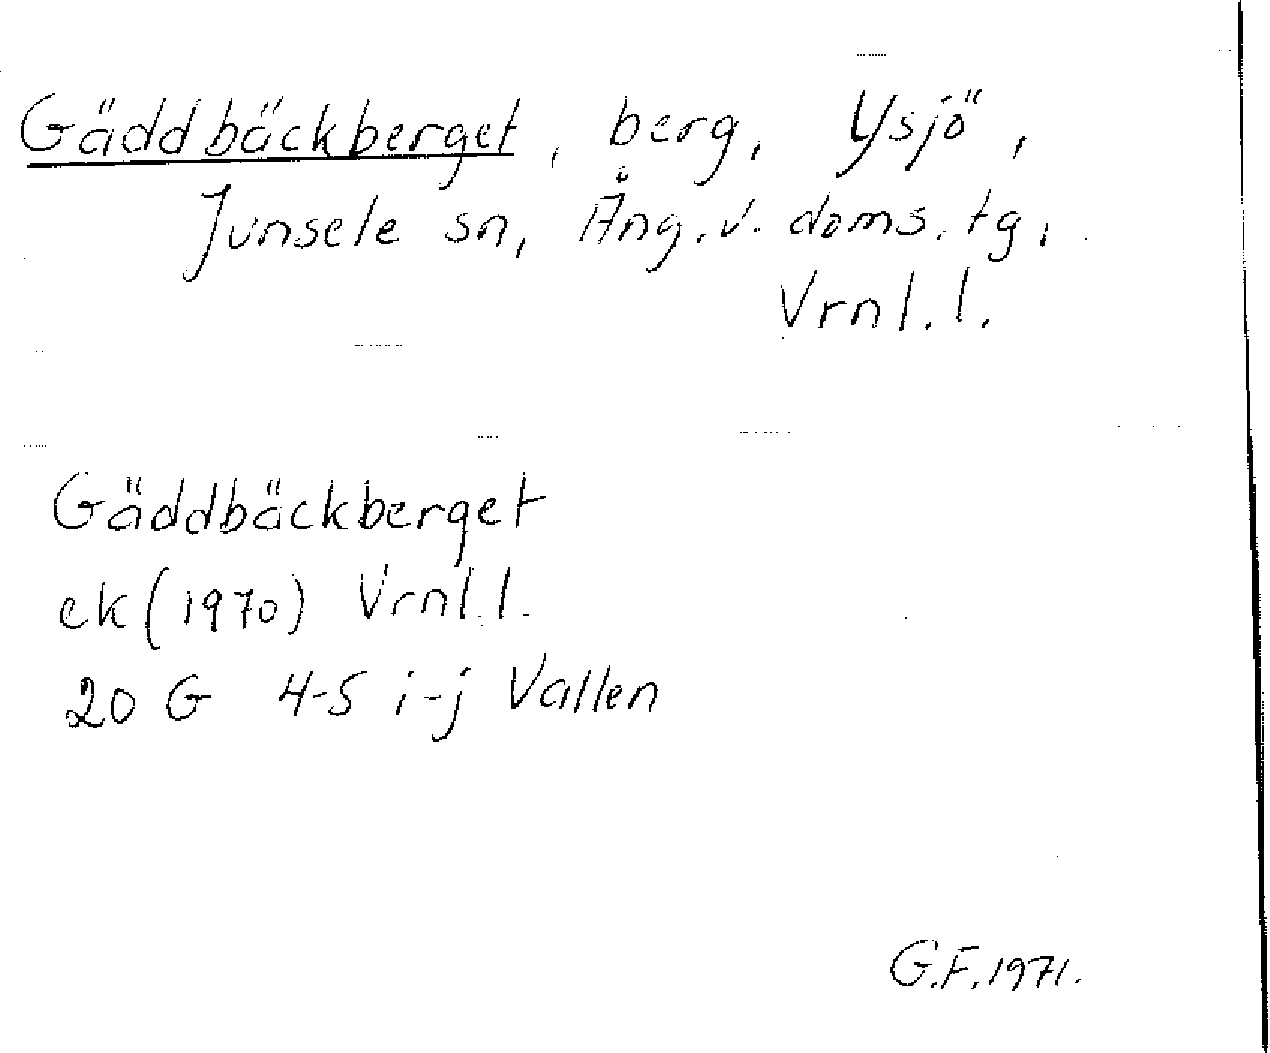 Gäddbäckberget, berg, Ysjö,
Junsele sn, Ång. v. doms. tg,
Vrnl. l.
Gäddbäckberget
ek (1970) Vrnl. l.
20 G 4-5 i-j Vallen
G.F. 1971.